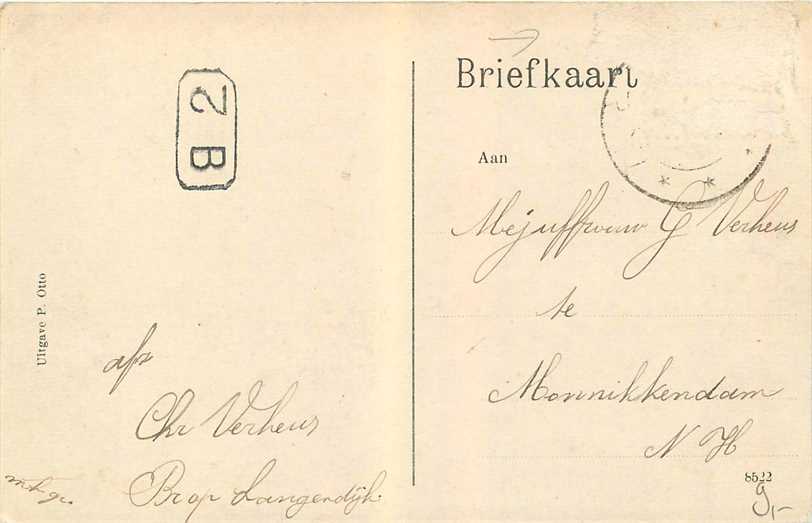 Briefkaart
B 2
Aan
Mejuffrouw G Verheus
te
Monnikkendam
N H
Uitgave P. Otto
afz
Chr Verheus
Br op Langendijk
8522
9,-